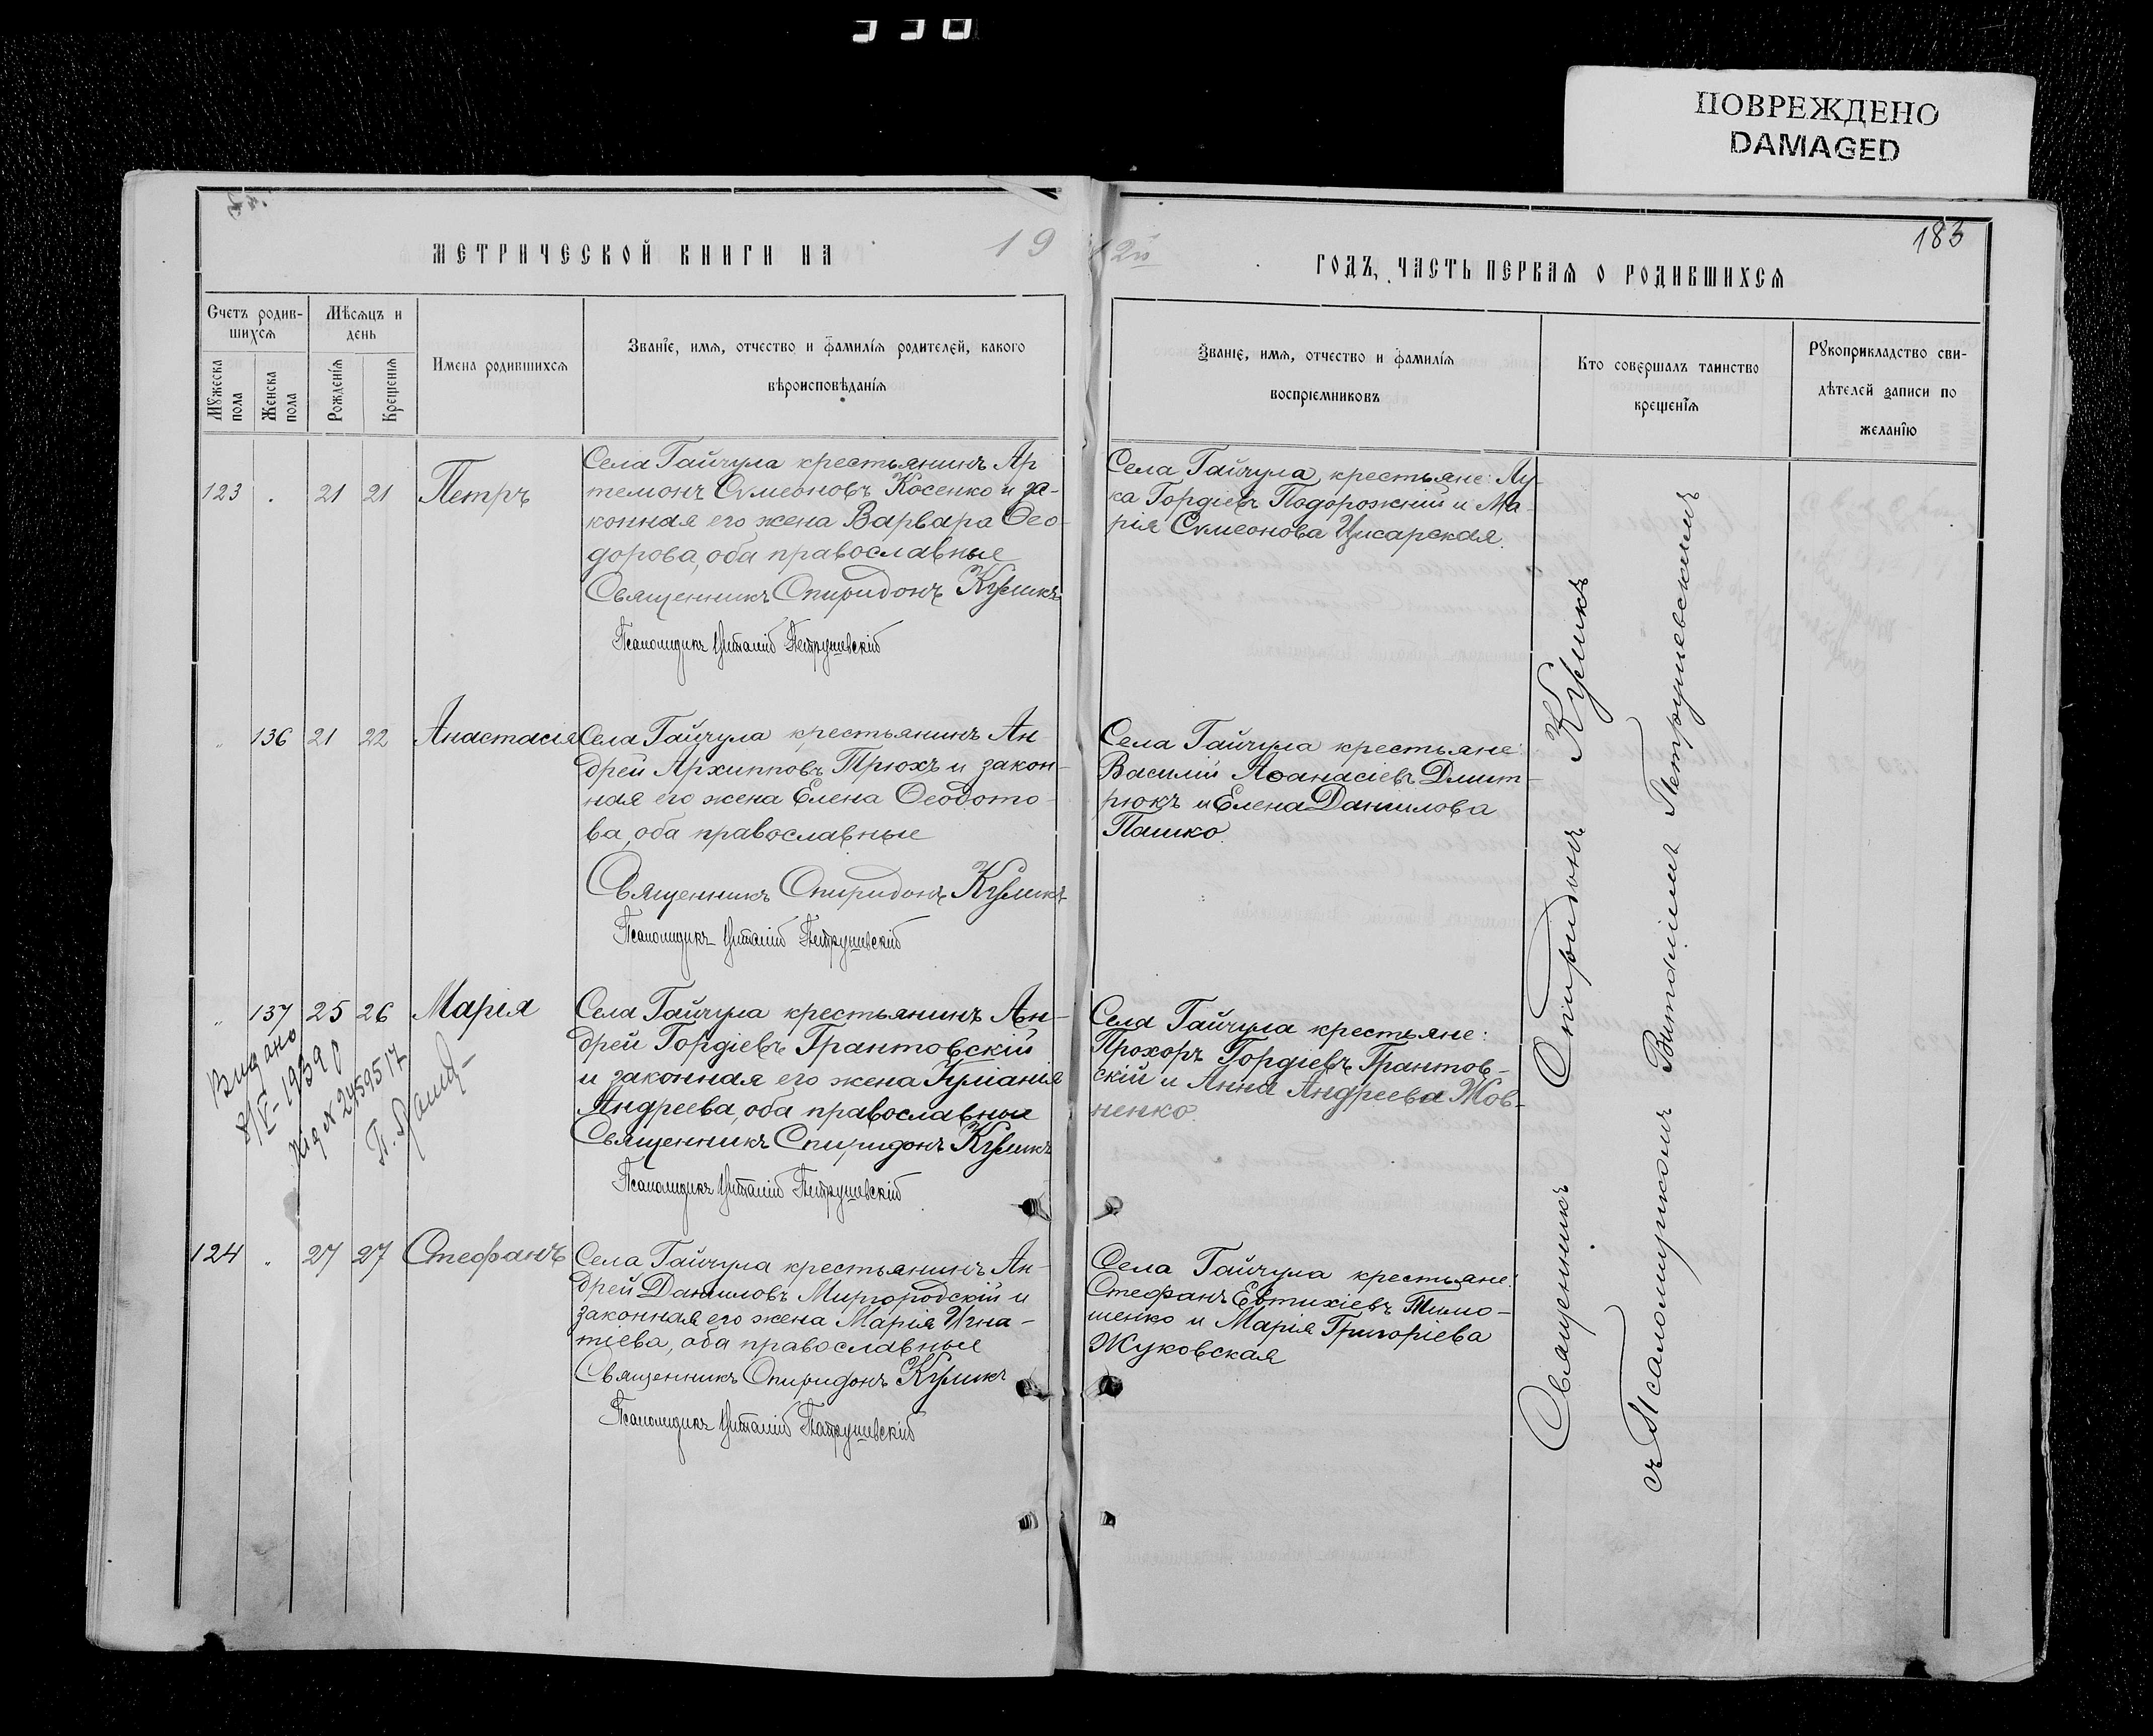 330
ПОВРЕЖДЕНО
DAMAGED
МЕТРИЧЕСКОЙ КНИГИ НА 19
12й ГОДЪ, ЧАСТЬ ПЕРВАѦ О РОДИВШИХСѦ
183
Счетъ родив-
шихсѧ
Мужеска
пола
Женска
пола
Мѣсѧцъ и
день
Рожденїѧ
Крещенїѧ
Имена родившихсѧ
Званїе, имѧ, отчество и фамилїѧ родителей, какого
вѣроисповѣданїѧ
Званїе, имѧ, отчество и фамилїѧ
воспрїемниковъ
Кто совершалъ таинство
крещенїѧ
Рукоприкладство сви-
дѣтелей записи по
желанїю
123 . 21 21 Петръ
Села Гайчула крестьянинъ Ар
темонъ Сѵмеоновъ Косенко и за-
конная его жена Варвара Ѳео-
дорова, оба православные
Священникъ Спиридонъ Куликъ
Псаломщикъ Виталій Петрушевскій
Села Гайчула крестьяне: Лу-
ка Гордіевъ Подорожній и Ма-
рія Сѵмеонова Цисарская.
„ 136 21 22 Анастасія
Села Гайчула крестьянинъ Ан
дрей Архипповъ Трюхъ и закон-
ная его жена Елена Ѳеодото-
ва, оба православные
Священникъ Спиридонъ Куликъ
Псаломщикъ Виталій Петрушевскій
Села Гайчула крестьяне:
Василій Аѳанасіевъ Дмит-
рюкъ и Елена Даниилова
Пашко.
„ 137 25 26 Марія
Видано
8/V-1939 р
П.
Села Гайчула крестьянинъ Ан-
дрей Гордіевъ Грантовскій
и законная его жена Іуліанія
Андреева, оба православные
Священникъ Спиридонъ Куликъ
Псаломщикъ Виталій Петрушевскій
Села Гайчула крестьяне:
Прохоръ Гордіевъ Грантов-
скій и Анна Андреева Жов-
ненко.
124 „ 27 27 Стефанъ
Села Гайчула крестьянинъ Ан-
дрей Данииловъ Миргородскій и
законная его жена Марія Игна-
тіева, оба православные
Священникъ Спиридонъ Куликъ
Псаломщикъ Виталій Петрушевскій
Села Гайчула крестьяне:
Стефанъ Евтихіевъ Тимо-
шенко и Марія Григоріева
Жуковская
Священникъ Спиридонъ Куликъ
съ Псаломщикомъ Виталіемъ Петрушевскимъ